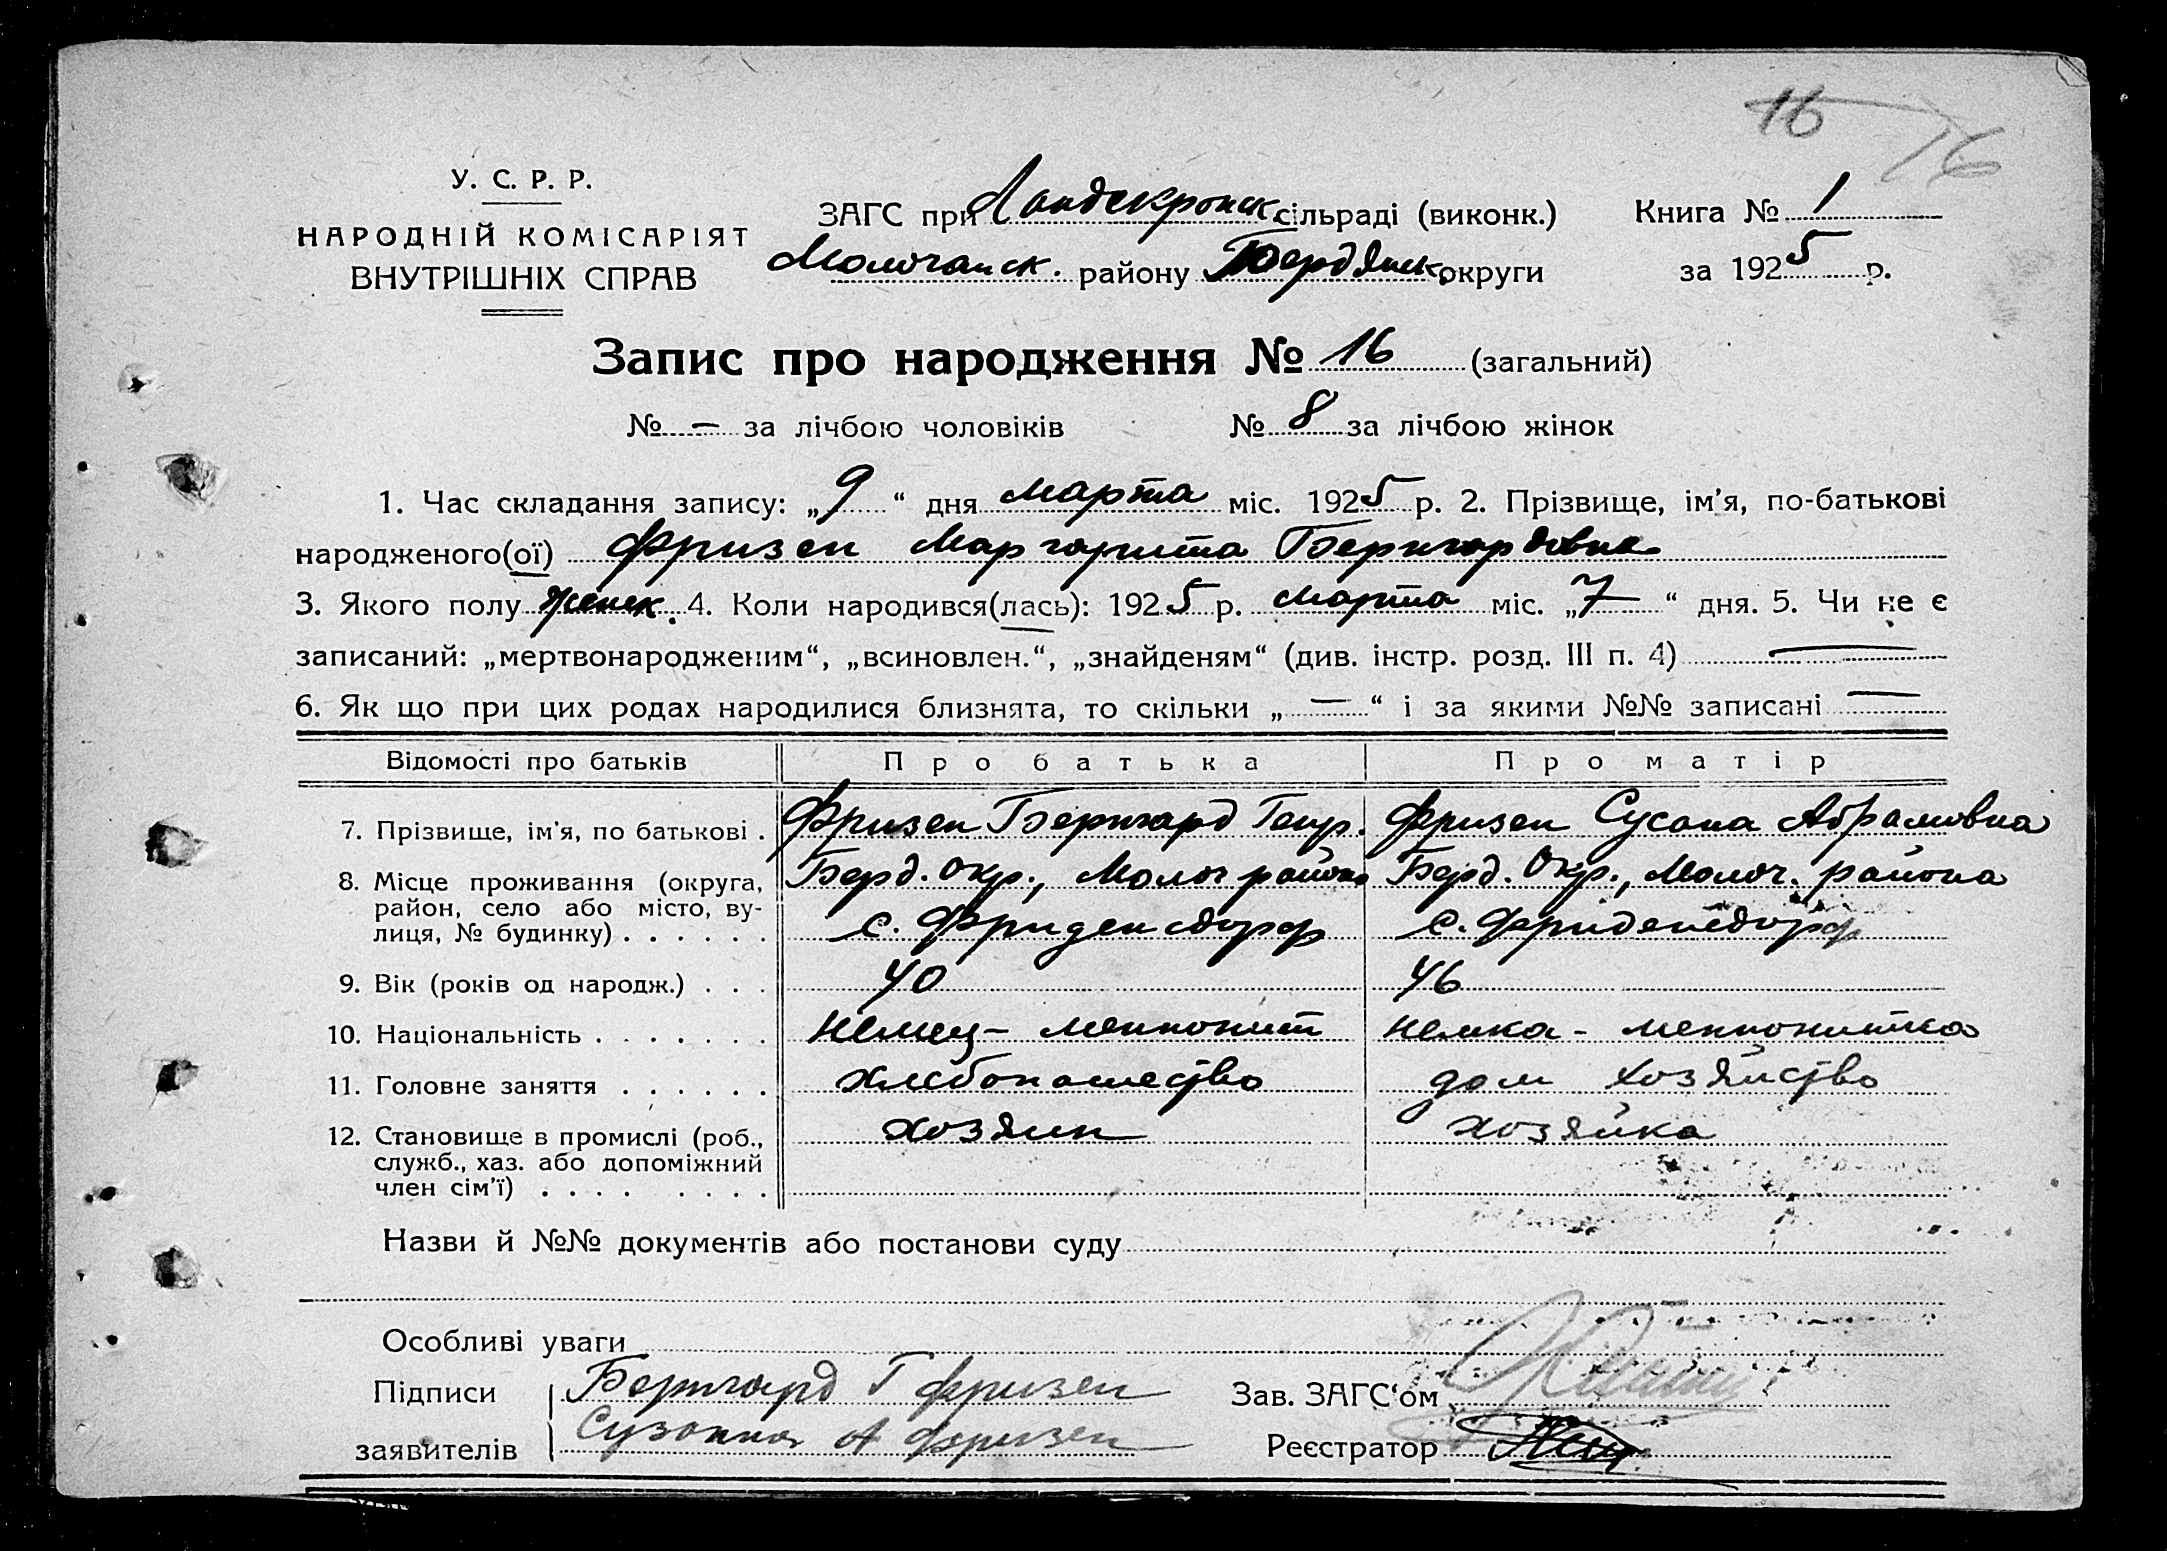 16
16
У. С. Р. Р.
НАРОДНІЙ КОМІСАРІЯТ
ВНУТРІШНІХ СПРАВ
ЗАГС при Ландскронск. сільраді (виконк.) Книга № 1
Молочанск. району Бердянск. округи за 1925 р.
Запис про народження № 16 (загальний)
№ – за лічбою чоловіків № 8 за лічбою жінок
1. Час складання запису: „9“ дня марта міс. 1925 р. 2. Прізвище, ім’я, по-батькові
народженого(ої) Фризен Маргарита Бернгардовна
3. Якого полу женск. 4. Коли народився(лась): 1925 р. марта міс. „7“ дня. 5. Чи не є
записаний: „мертвонародженим“, „всиновлен.“, „знайденям“ (див. інстр. розд. III п. 4) —
6. Як що при цих родах народилися близнята, то скільки „—“ і за якими №№ записані —
Відомості про батьків Про батька Про матір
7. Прізвище, ім’я, по батькові . Фризен Бернгард Генр. Фризен Сусана Абрамовна
8. Місце проживання (округа, район, село або місто, вулиця, № будинку) . . . . . . Берд. Окр., Молоч района Берд. Окр., Молоч. района
с. Фриденсдорф с. Фриденсдорф
9. Вік (років од народж.) . . . 40 46
10. Національність . . . . . . . Немец – меннонит Немка - меннонитка
11. Головне заняття . . . . . . хлебопашество дом хозяйство
12. Становище в промислі (роб., служб., хаз. або допоміжний член сім’ї) . . . . . . . . хозяин хозяйка
Назви й №№ документів або постанови суду
Особливі уваги
Підписи Бернгард Г Фризен Зав. ЗАГС‘ом
заявителів Сузанна А Фризен Реєстратор